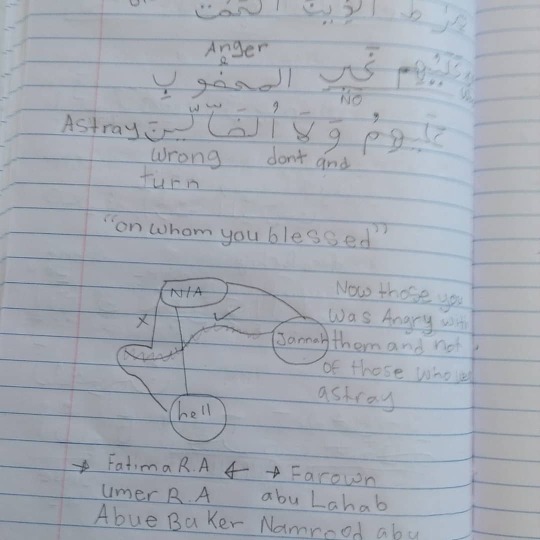 صراط الذين انعمت
Anger
عليهم غير المغضوب
NO
عليهم ولا الضالين Astray
wrong dont and
turn
"on whom you blessed"
N/A
X
Jannah
hell
Now those you
was Angry with
them and not
of those who
astray
→ Fatima R.A ← → Farown
umer R.A abu Lahab
Abue Baker Namrood abu